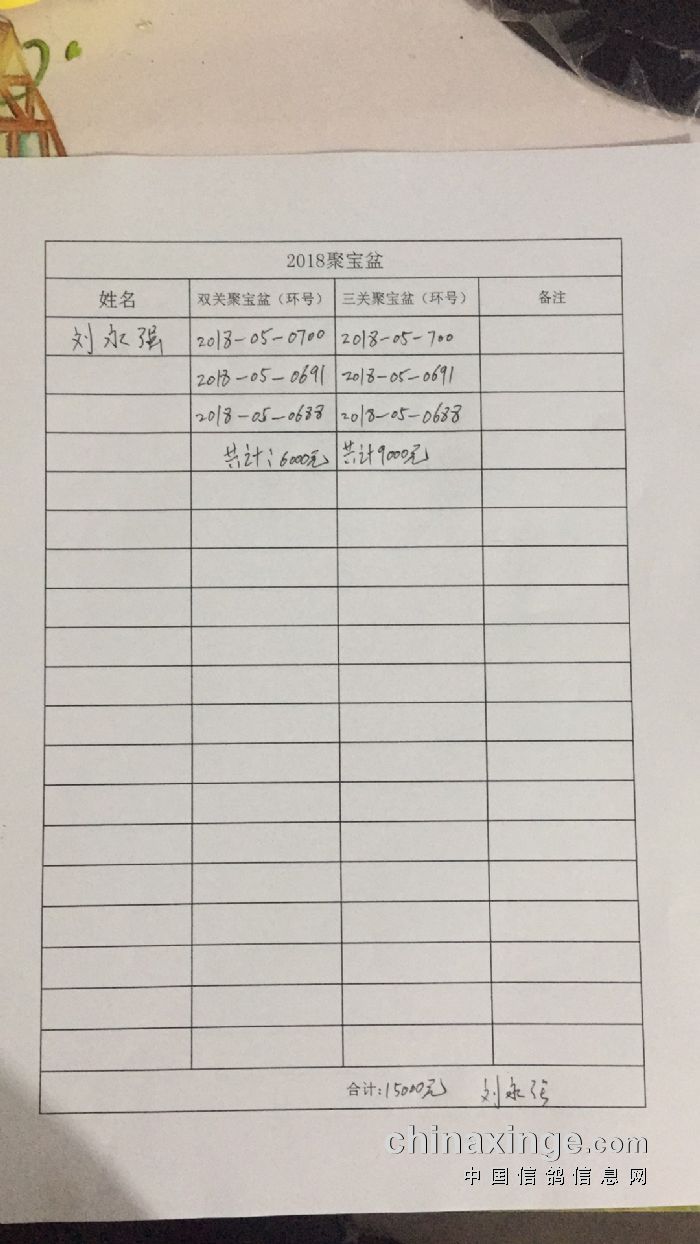 2018聚宝盆
姓名 双关聚宝盆（环号） 三关聚宝盆（环号） 备注
刘永强 2018-05-0700 2018-05-700
2018-05-0691 2018-05-0691
2018-05-0688 2018-05-0688
共计：6000元 共计9000元
合计：15000元 刘永强
chinaxinge.com
中国信鸽信息网